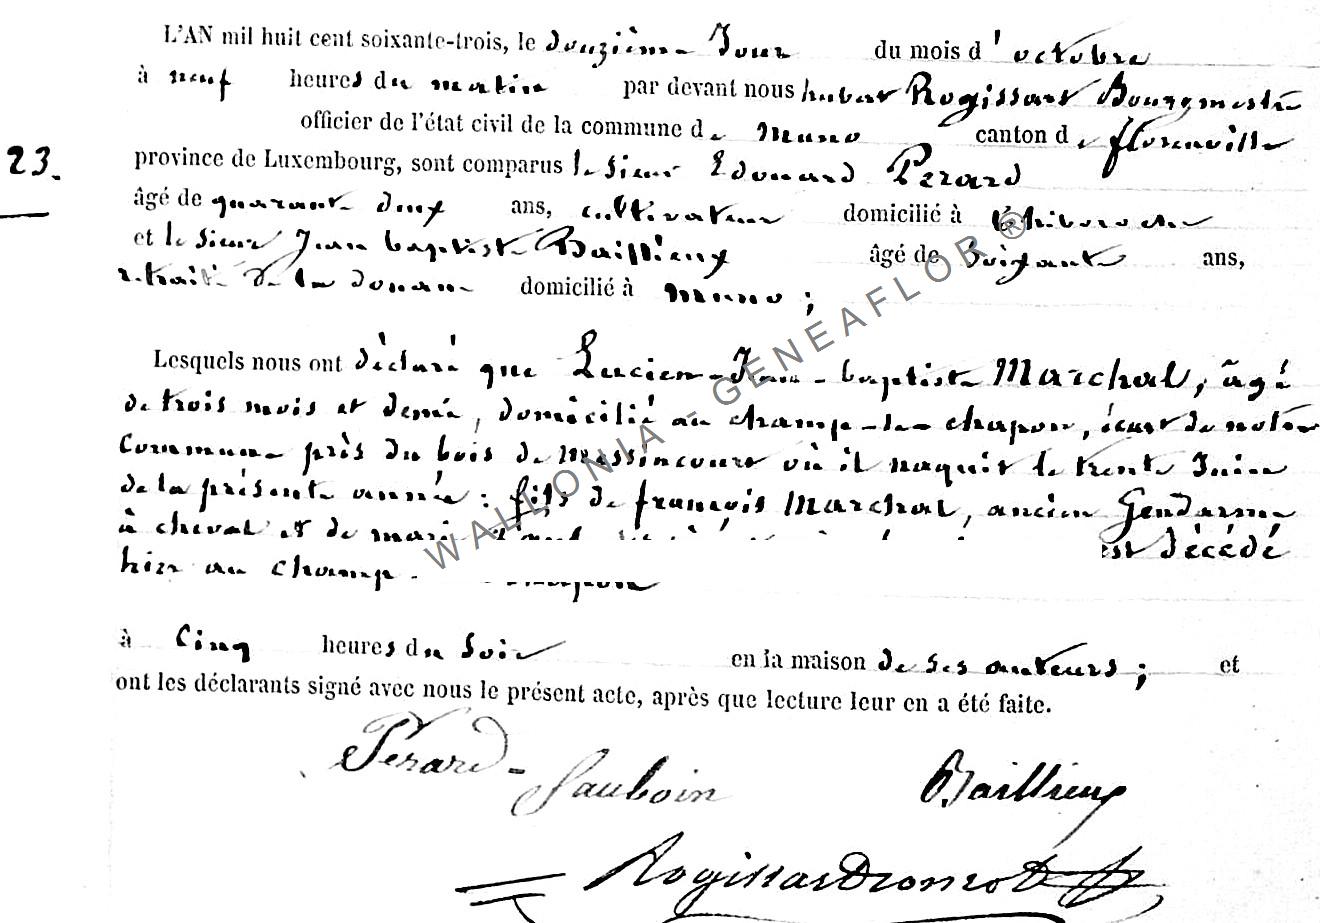 L'AN mil huit cent soixante-trois, le douzième Jour du mois d'octobre
à neuf heures du matin par devant nous hubert Rogissart Bourgmestre
officier de l'état civil de la commune de muno canton de florenville
23. province de Luxembourg, sont comparus le sieur Edouard Pérard
âgé de quarante deux ans, cultivateur domicilié à
et le sieur Jean baptiste Baillieux âgé de soixante ans,
retraité de la douane domicilié à muno ;
Lesquels nous ont déclaré que Lucien-Jean-baptiste Marchal, âgé
de trois mois et demi, domicilié au champ-le-chapon, écart de notre
Commune près du bois de messincourt où il naquit le trente Juin
de la présente année : fils de françois Marchal, ancien Gendarme
à cheval et de marie est décédé
hier au champ-
à Cinq heures du soir en la maison de ses auteurs ; et
ont les déclarants signé avec nous le présent acte, après que lecture leur en a été faite.
Pérard-Jauboin Baillieux
WALLONIA - GENEAFLOR ®